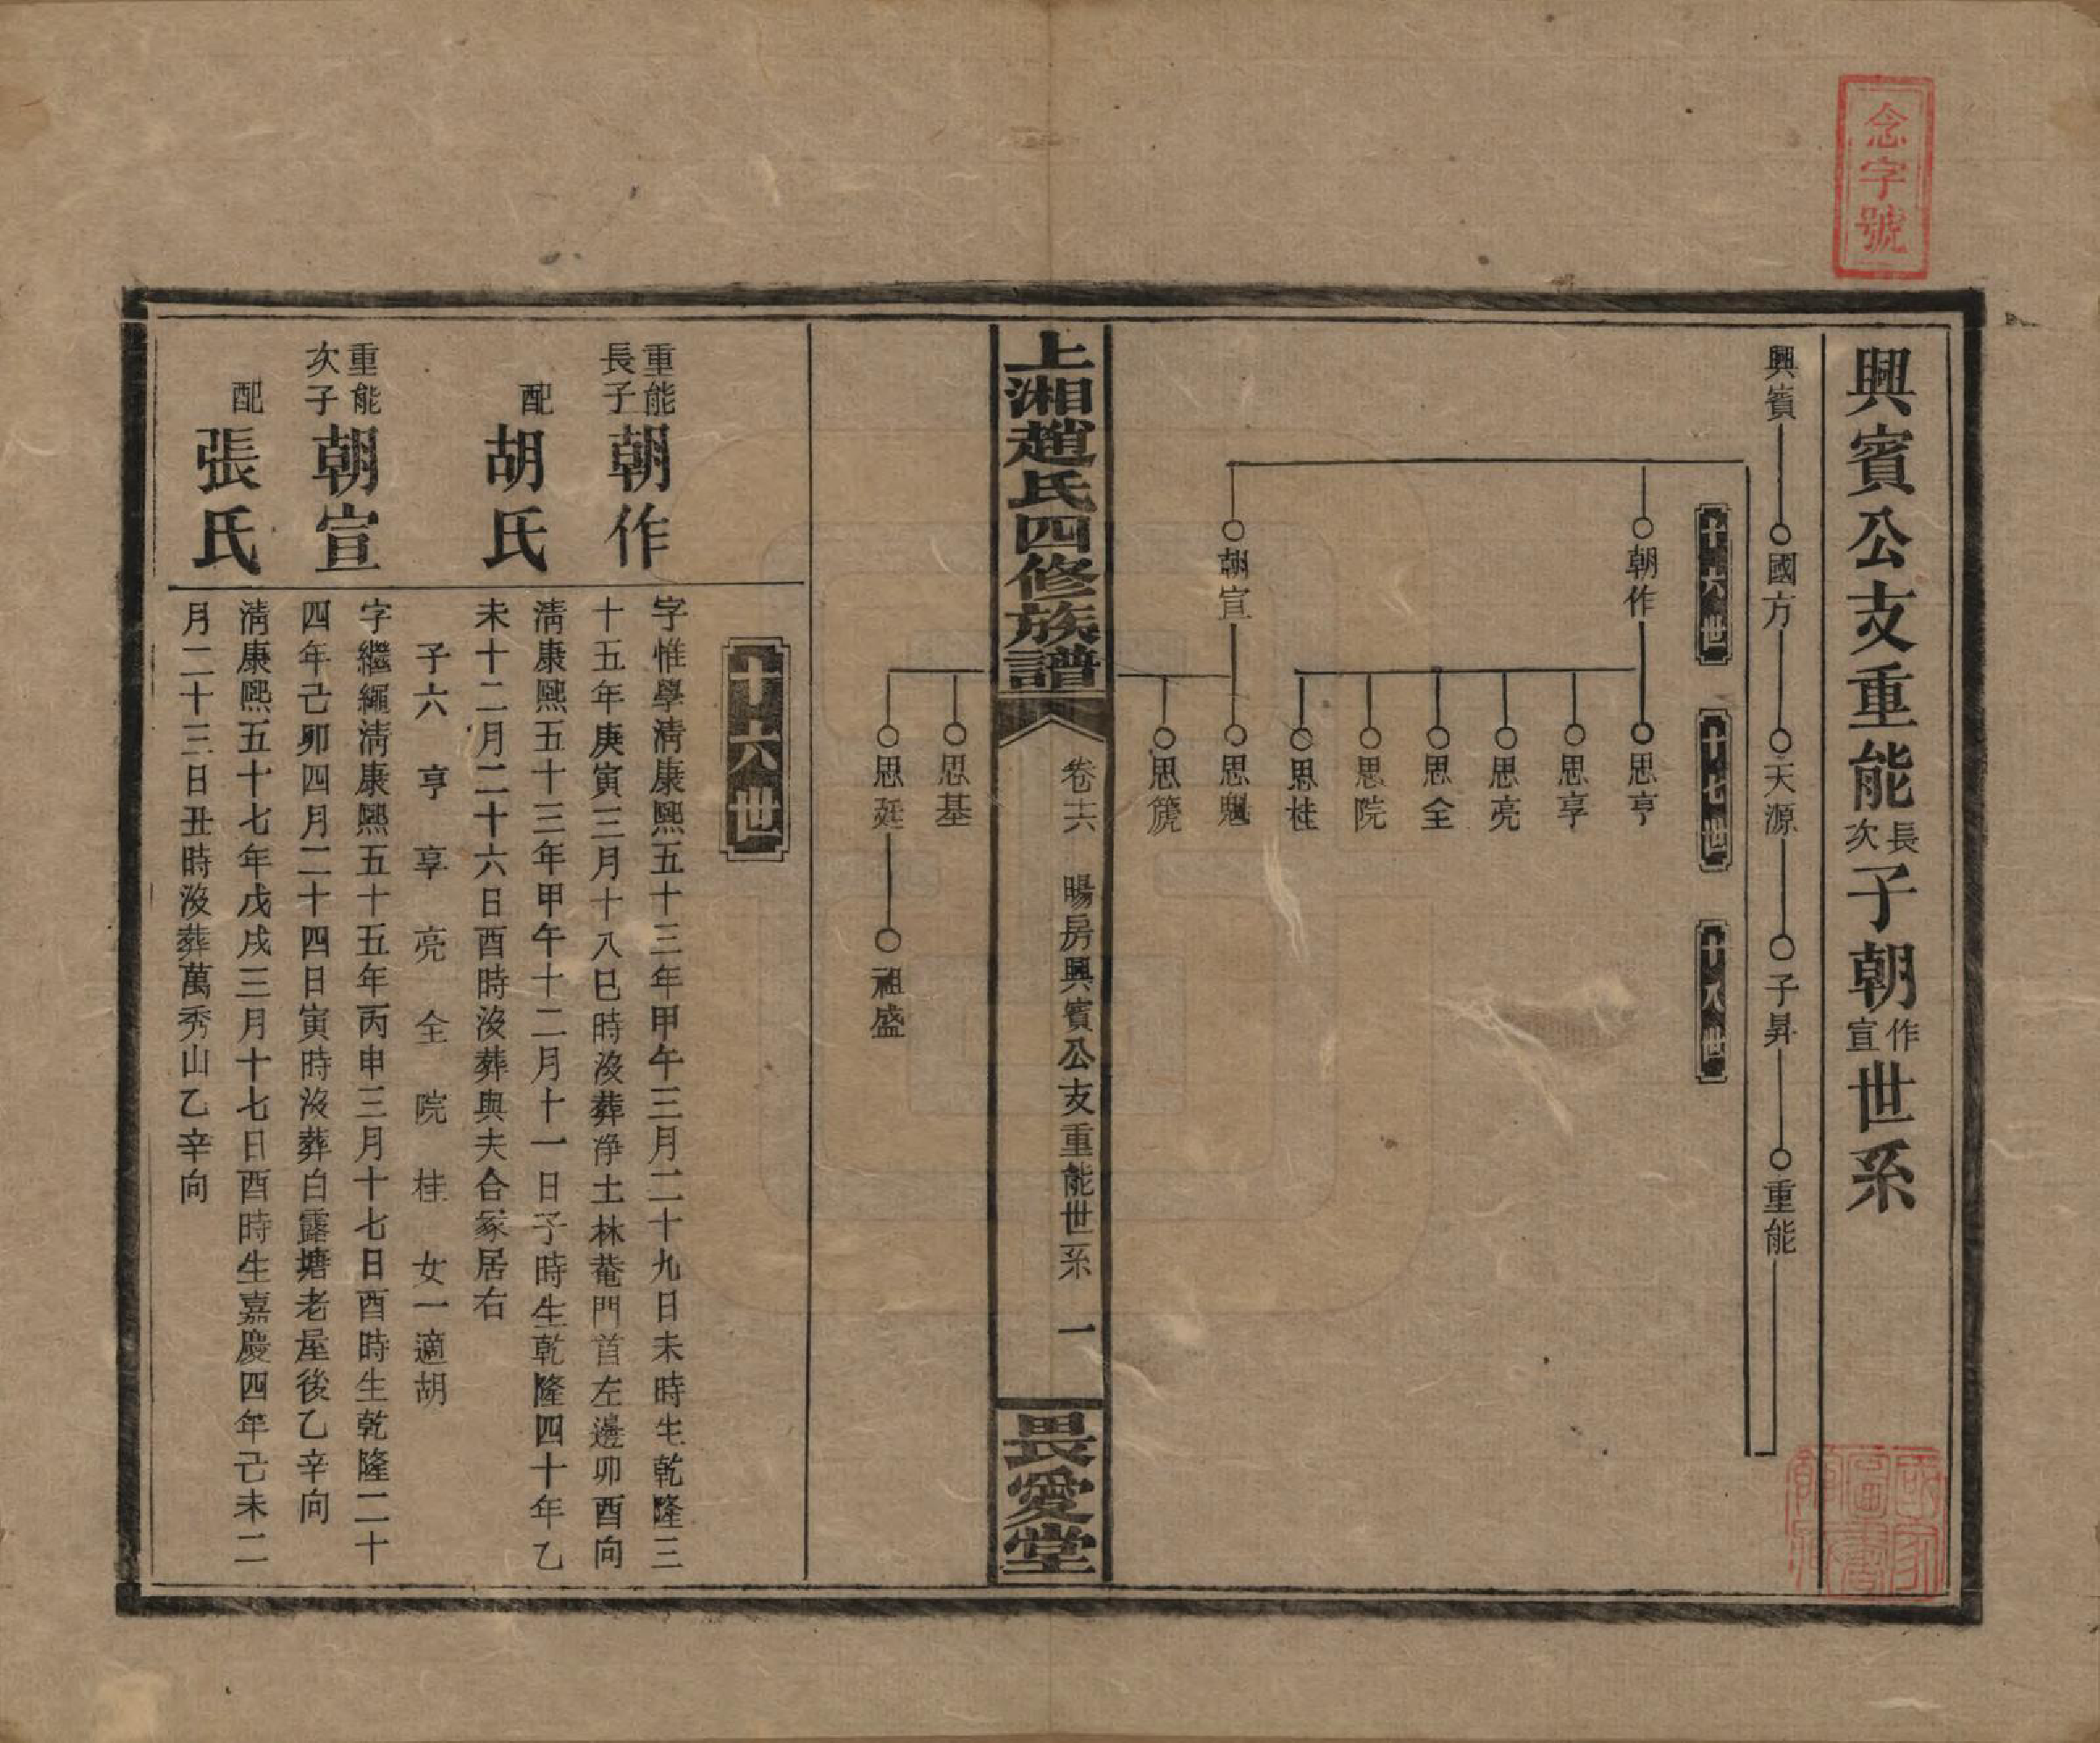 念字號
興賓公支重能長次子朝作宣世系
興賓 國方 天源 子昇 重能
十六世 十七世 十八世
朝作
思亨
思享
思亮
思全
思院
思桂
朝宣
思魁
思箎
上湘趙氏四修族譜
卷十六 暘房興賓公支重能世系 一
畏愛堂
思基
思廷 祖盛
十六世
重能長子朝作
字惟學淸康熙五十三年甲午三月二十九日未時生乾隆三
十五年庚寅三月十八巳時沒葬淨土林菴門首左邊卯酉向
配胡氏
淸康熙五十三年甲午十二月十一日子時生乾隆四十年乙
未十二月二十六日酉時沒葬與夫合冢居右
子六 亨 享 亮 全 院 桂 女一適胡
重能次子朝宣
字繼繩淸康熙五十五年丙申三月十七日酉時生乾隆二十
四年己卯四月二十四日寅時沒葬白露塘老屋後乙辛向
配張氏
淸康熙五十七年戊戌三月十七日酉時生嘉慶四年己未二
月二十三日丑時沒葬萬秀山乙辛向